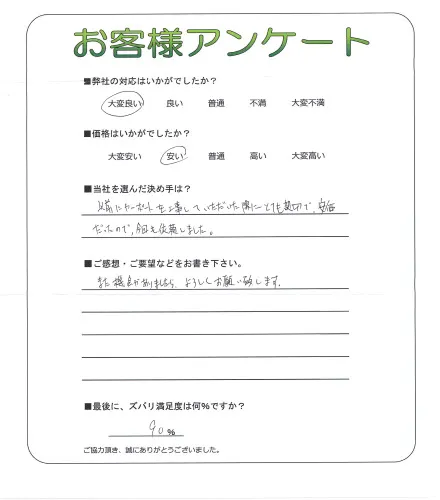 お客様アンケート
■弊社の対応はいかがでしたか?
大変良い 良い 普通 不満 大変不満
■価格はいかがでしたか?
大変安い 安い 普通 高い 大変高い
■当社を選んだ決め手は?
以前にカーポートを工事していただいた際にとても親切で、安価
だったので、今回も依頼しました。
■ご感想・ご要望などをお書き下さい。
また機会がありましたら、よろしくお願い致します。
■最後に、ズバリ満足度は何%ですか?
90%
ご協力頂き、誠にありがとうございました。